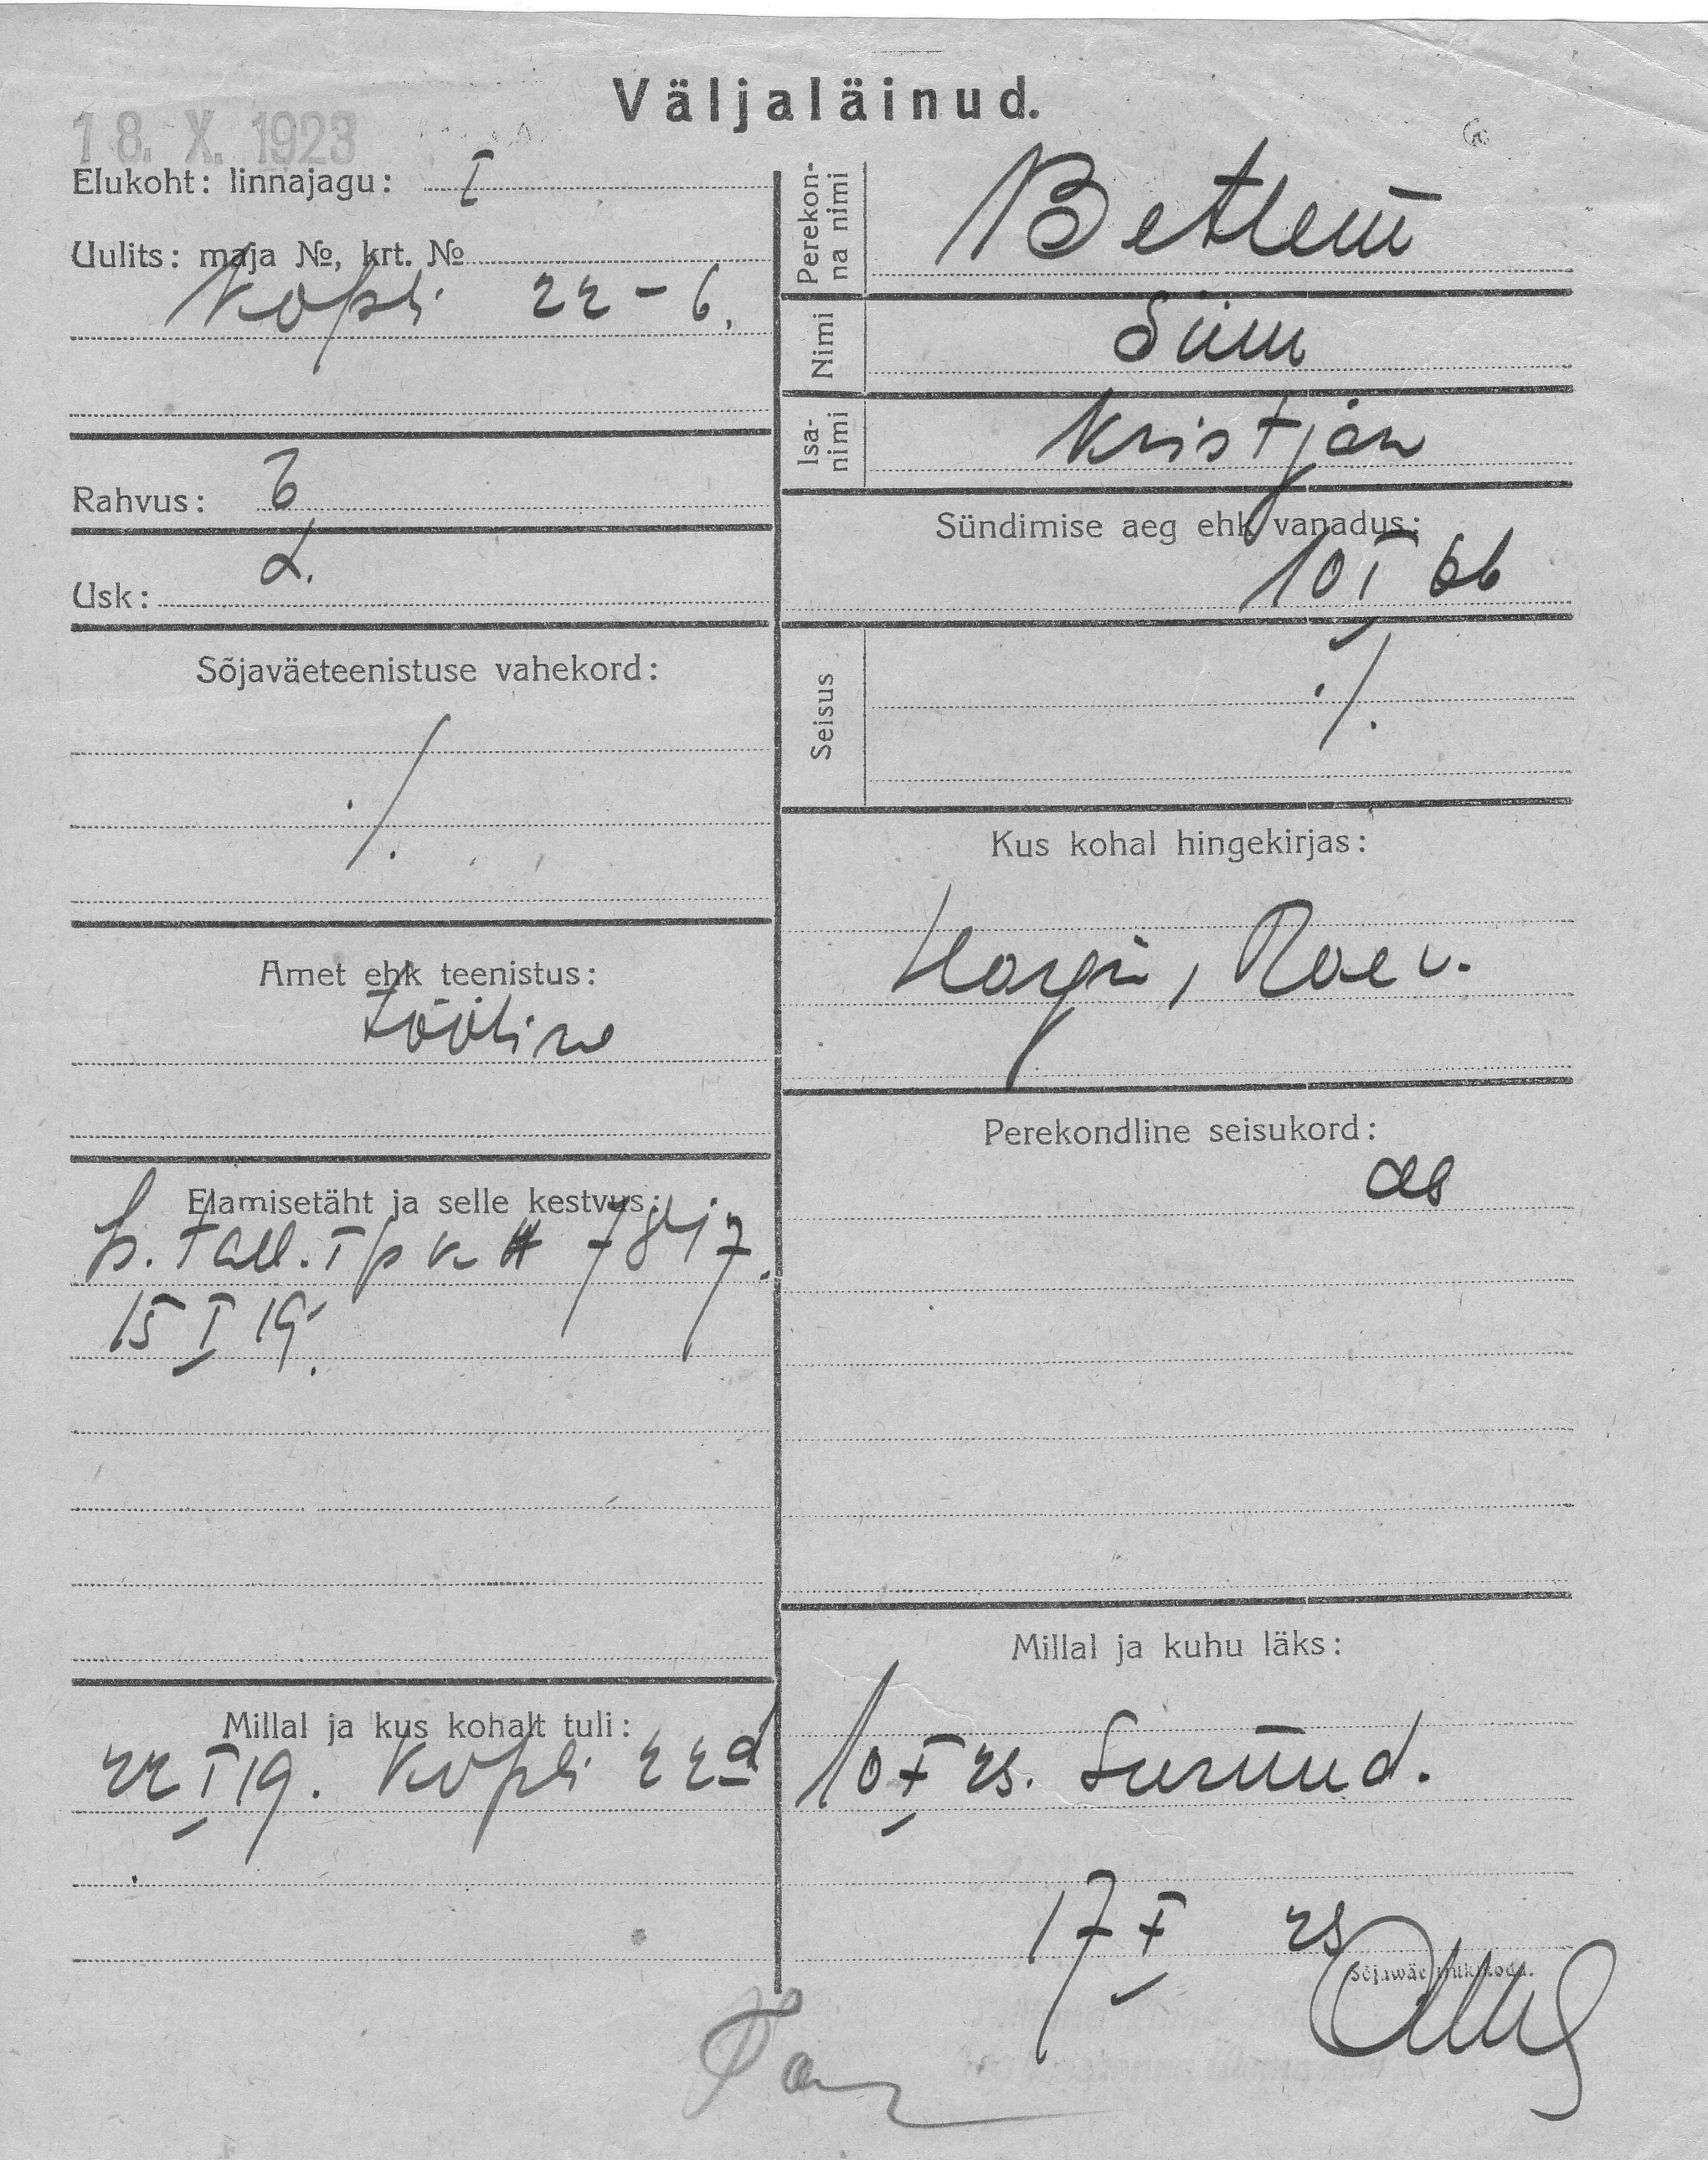 Väljaläinud.
18. X. 1923
Elukoht: linnajagu: I
Uulits: maja №, krt. №
Kopli 22-6.
Rahvus: E
Usk: L.
Sõjaväeteenistuse vahekord:
./.
Amet ehk teenistus:
tööline
Elamisetäht ja selle kestvus:
p. Tall. I p k # 7817.
15 I 19.
Millal ja kus kohalt tuli:
22 I 19. Kopli 22a
Perekon-
na nimi
Betlem
Nimi
Siim
Isa-
nimi
Kristjan
Sündimise aeg ehk vanadus:
10 I 66
Seisus
./.
Kus kohal hingekirjas:
Harju, Rae v.
Perekondline seisukord:
ab
Millal ja kuhu läks:
10 X 23. Surnud.
17 X 23
Sõjawäe trükikoda.